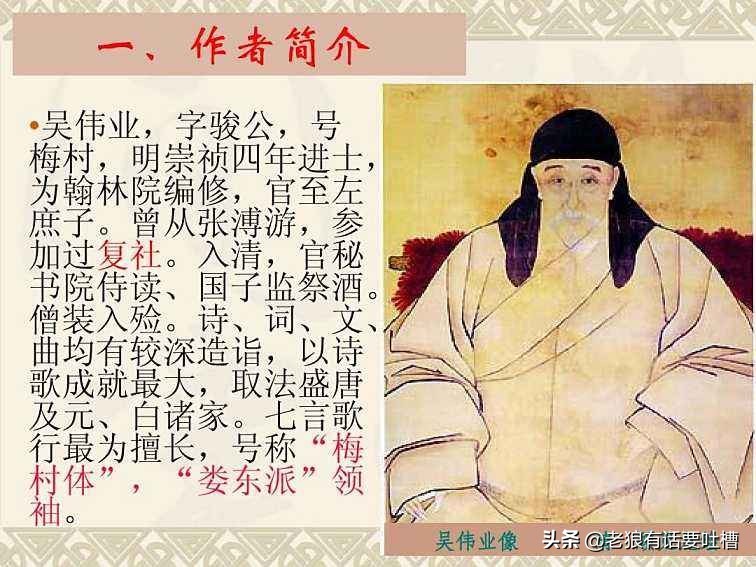 一、作者简介
•吴伟业，字骏公，号
梅村，明崇祯四年进士，
为翰林院编修，官至左
庶子。曾从张溥游，参
加过复社。入清，官秘
书院侍读、国子监祭酒。
僧装入殓。诗、词、文、
曲均有较深造诣，以诗
歌成就最大，取法盛唐
及元、白诸家。七言歌
行最为擅长，号称“梅
村体”，“娄东派”领
袖。
吴伟业像
头条 @老狼有话要吐槽